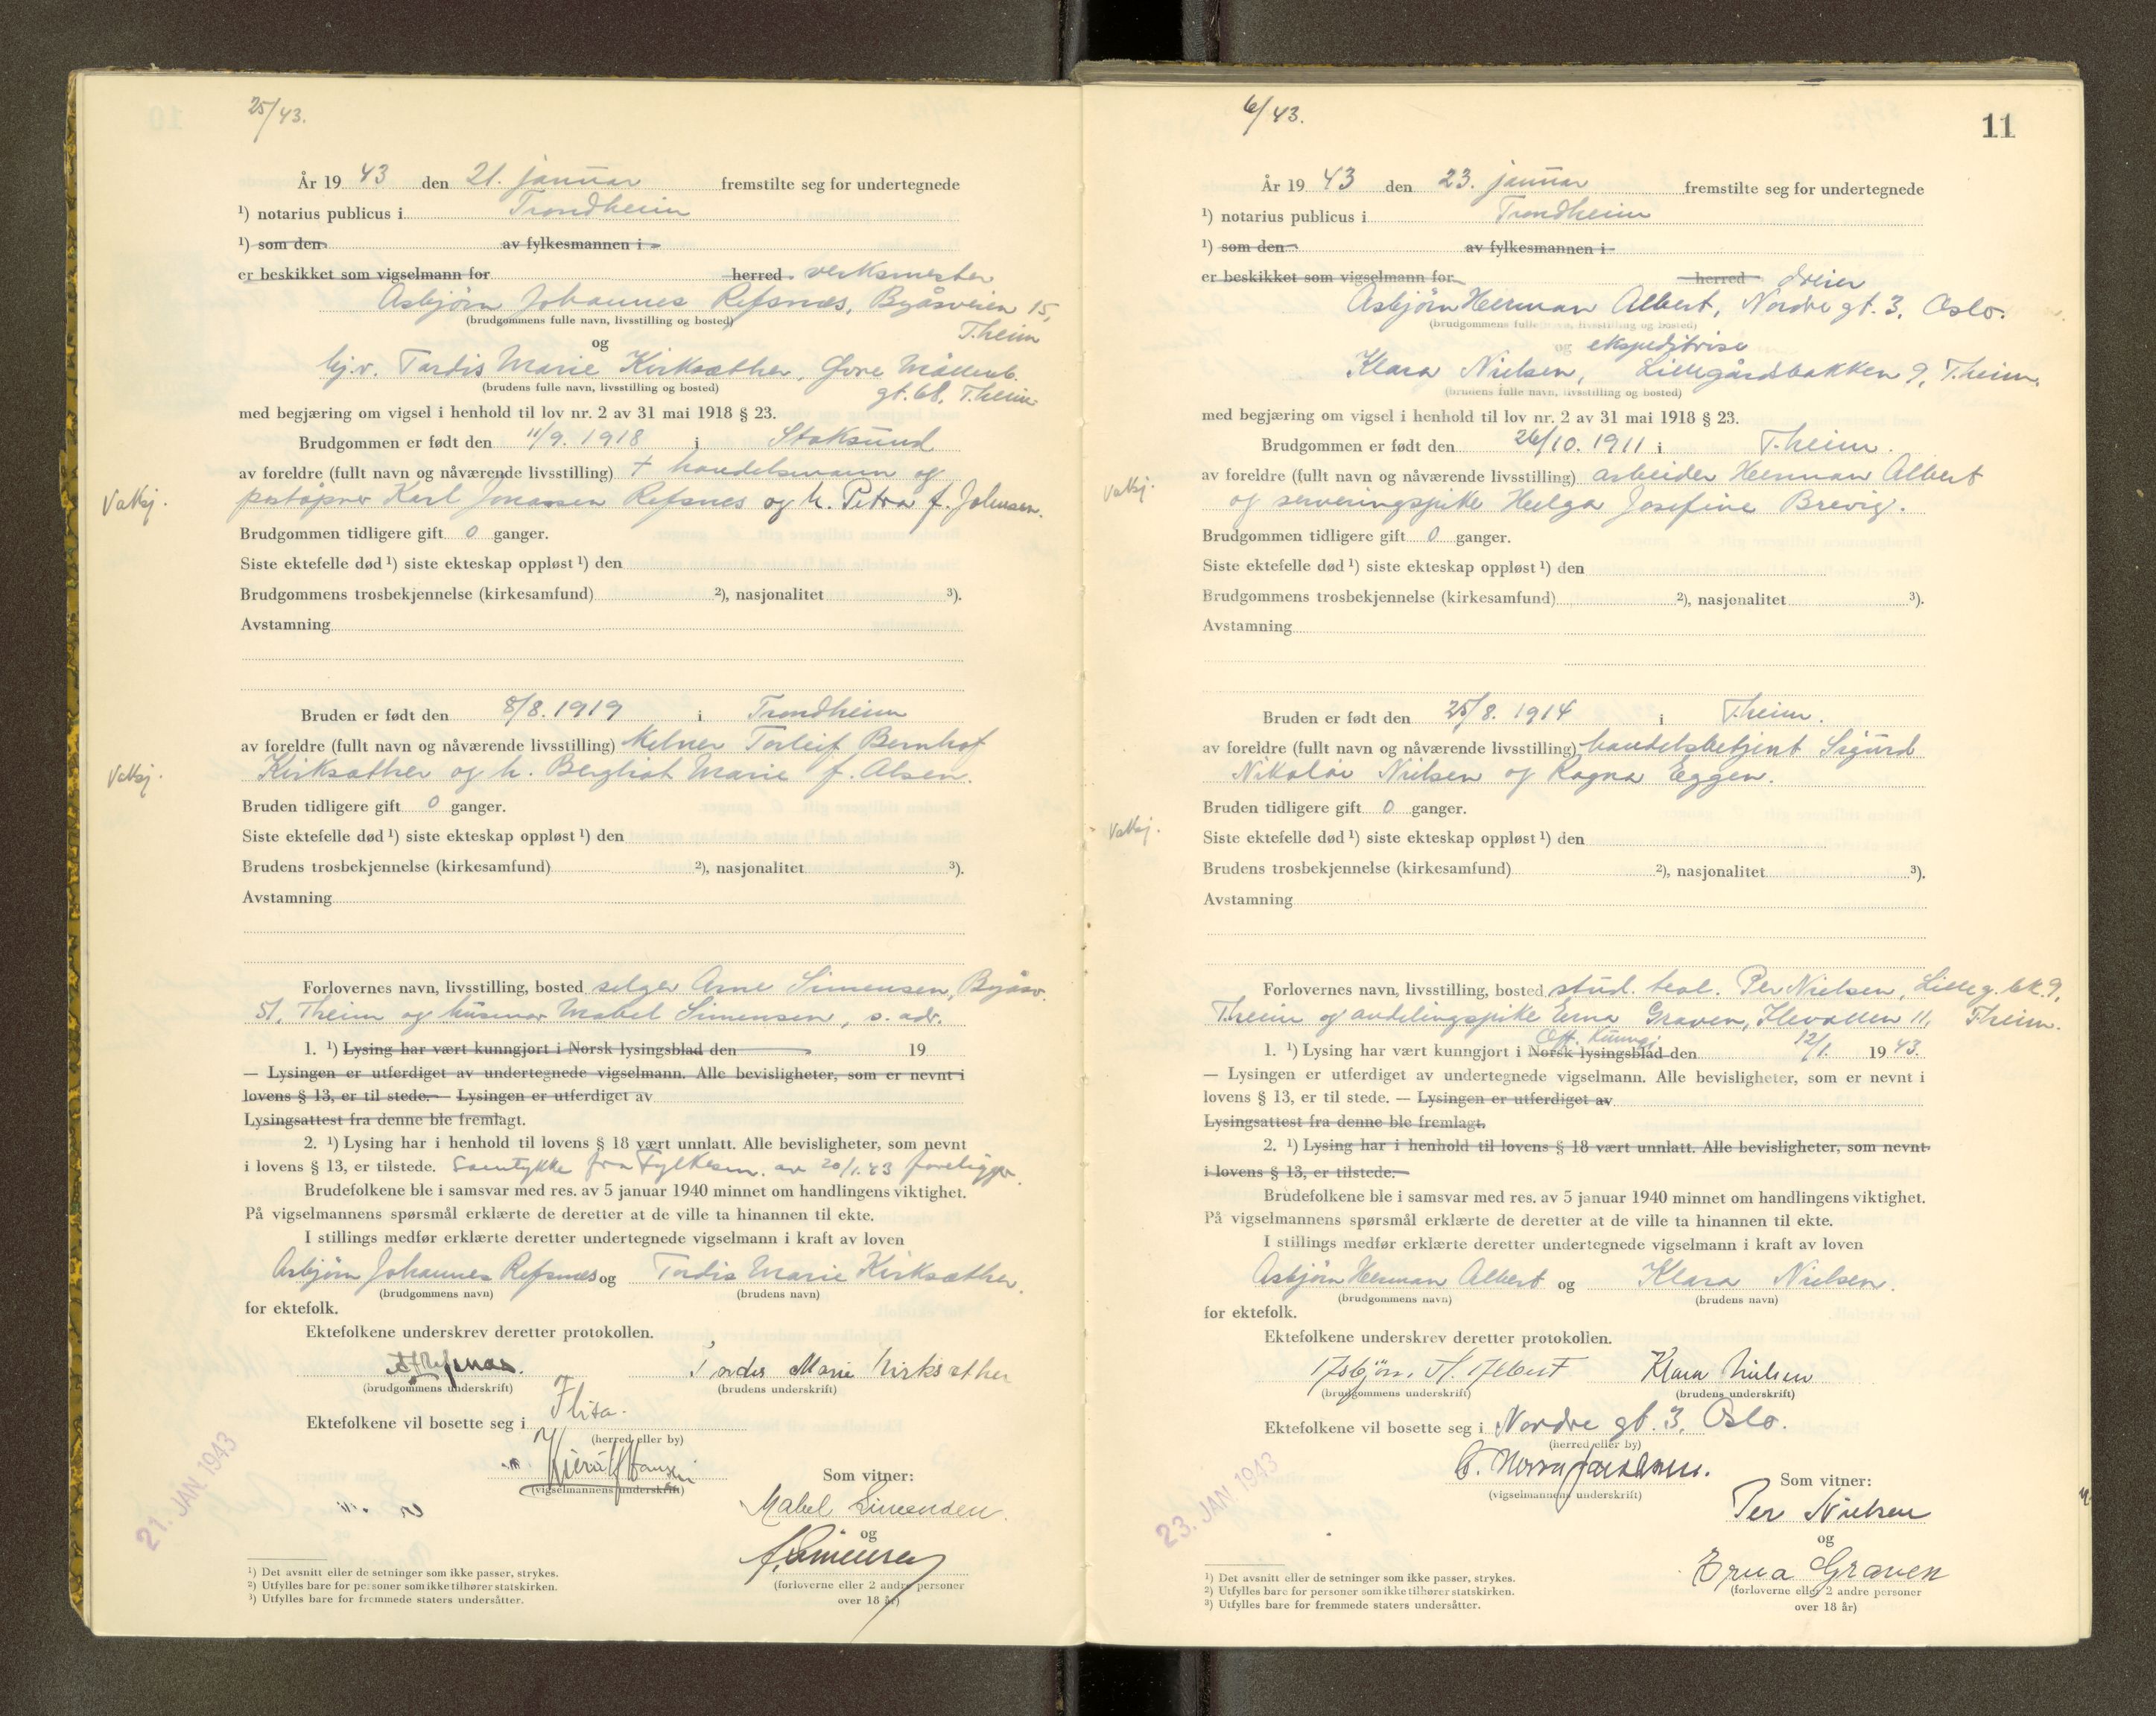 25/43.
År 19 43 den 21. januar fremstilte seg for undertegnede
¹) notarius publicus i Trondheim
¹) som den av fylkesmannen i
er beskikket som vigselmann for herred. verksmester
Asbjørn Johannes Refsnes, Byåsveien 15,
(brudgommens fulle navn, livsstilling og bosted) T.heim
og
hj.v. Tordis Marie Kirksæther, Øvre Møllenb.
(brudens fulle navn, livsstilling og bosted) gt. 68, T.heim
med begjæring om vigsel i henhold til lov nr. 2 av 31 mai 1918 § 23.
Brudgommen er født den 11/9. 1918 i Stoksund
av foreldre (fullt navn og nåværende livsstilling) + handelsmann og
Vatsj. poståpner Karl Jonassen Refsnes og h. Petra f. Johnsen.
Brudgommen tidligere gift 0 ganger.
Siste ektefelle død ¹) siste ekteskap oppløst ¹) den
Brudgommens trosbekjennelse (kirkesamfund) ²), nasjonalitet ³).
Avstamning
Bruden er født den 8/8. 1919 i Trondheim
av foreldre (fullt navn og nåværende livsstilling) kelner Torleif Bernhof
Vatsj. Kirksæther og h. Bergliot Marie f. Alsen.
Bruden tidligere gift 0 ganger.
Siste ektefelle død ¹) siste ekteskap oppløst ¹) den
Brudens trosbekjennelse (kirkesamfund) ²), nasjonalitet ³).
Avstamning
Forlovernes navn, livsstilling, bosted selger Arne Simensen, Byåsv.
51, T.heim og husmor Mabel Simensen, s. adr.
1. ¹) Lysing har vært kunngjort i Norsk lysingsblad den 19
— Lysingen er utferdiget av undertegnede vigselmann. Alle bevisligheter, som er nevnt i
lovens § 13, er til stede. — Lysingen er utferdiget av
Lysingsattest fra denne ble fremlagt.
2. ¹) Lysing har i henhold til lovens § 18 vært unnlatt. Alle bevisligheter, som nevnt
i lovens § 13, er tilstede. Samtykke fra Fylkesm. av 20/1.43 foreligger.
Brudefolkene ble i samsvar med res. av 5 januar 1940 minnet om handlingens viktighet.
På vigselmannens spørsmål erklærte de deretter at de ville ta hinannen til ekte.
I stillings medfør erklærte deretter undertegnede vigselmann i kraft av loven
Asbjørn Johannes Refsnes og Tordis Marie Kirksæther.
(brudgommens navn) (brudens navn)
for ektefolk.
Ektefolkene underskrev deretter protokollen.
Refsnes. Tordis Marie Kirksæther
(brudgommens underskrift) (brudens underskrift)
Ektefolkene vil bosette seg i Flisa.
(herred eller by)
21. JAN 1943
Hansen
(vigselmannens underskrift)
Som vitner:
Mabel Simensen.
og
A. Simensen
(forloverne eller 2 andre personer
over 18 år)
¹) Det avsnitt eller de setninger som ikke passer, strykes.
²) Utfylles bare for personer som ikke tilhører statskirken.
³) Utfylles bare for fremmede staters undersåtter.
6/43.
11
År 19 43 den 23. januar fremstilte seg for undertegnede
¹) notarius publicus i Trondheim
¹) som den av fylkesmannen i
er beskikket som vigselmann for herred dreier
Asbjørn Herman Albert, Nordre gt. 3, Oslo.
(brudgommens fulle navn, livsstilling og bosted)
og ekspeditrise
Klara Nielsen, Lillegårdsbakken 9, T.heim.
(brudens fulle navn, livsstilling og bosted)
med begjæring om vigsel i henhold til lov nr. 2 av 31 mai 1918 § 23.
Brudgommen er født den 26/10. 1911 i T.heim.
Vatsj. av foreldre (fullt navn og nåværende livsstilling) arbeider Herman Albert
og serveringspike Helga Josefine Brevig.
Brudgommen tidligere gift 0 ganger.
Siste ektefelle død ¹) siste ekteskap oppløst ¹) den
Brudgommens trosbekjennelse (kirkesamfund) ²), nasjonalitet ³).
Avstamning
Bruden er født den 25/8. 1914 i T.heim.
av foreldre (fullt navn og nåværende livsstilling) handelsbetjent Sigurd
Nikolai Nielsen og Ragna Eggen.
Bruden tidligere gift 0 ganger.
Vatsj. Siste ektefelle død ¹) siste ekteskap oppløst ¹) den
Brudens trosbekjennelse (kirkesamfund) ²), nasjonalitet ³).
Avstamning
Forlovernes navn, livsstilling, bosted stud. teol. Per Nielsen, Lilleg. bk. 9,
T.heim og avdelingspike Erna Graven, Ilevollen 11, T.heim.
Off. Kunngj.
1. ¹) Lysing har vært kunngjort i Norsk lysingsblad den 12/1. 19 43.
— Lysingen er utferdiget av undertegnede vigselmann. Alle bevisligheter, som er nevnt i
lovens § 13, er til stede. — Lysingen er utferdiget av
Lysingsattest fra denne ble fremlagt.
2. ¹) Lysing har i henhold til lovens § 18 vært unnlatt. Alle bevisligheter, som nevnt
i lovens § 13, er tilstede.
Brudefolkene ble i samsvar med res. av 5 januar 1940 minnet om handlingens viktighet.
På vigselmannens spørsmål erklærte de deretter at de ville ta hinannen til ekte.
I stillings medfør erklærte deretter undertegnede vigselmann i kraft av loven
Asbjørn Herman Albert og Klara Nielsen.
(brudgommens navn) (brudens navn)
for ektefolk.
Ektefolkene underskrev deretter protokollen.
Asbjørn H. Albert Klara Nielsen
(brudgommens underskrift) (brudens underskrift)
Ektefolkene vil bosette seg i Nordre gt. 3, Oslo.
(herred eller by)
23. JAN 1943
(vigselmannens underskrift)
Som vitner:
Per Nielsen
og
Erna Graven
(forloverne eller 2 andre personer
over 18 år)
¹) Det avsnitt eller de setninger som ikke passer, strykes.
²) Utfylles bare for personer som ikke tilhører statskirken.
³) Utfylles bare for fremmede staters undersåtter.